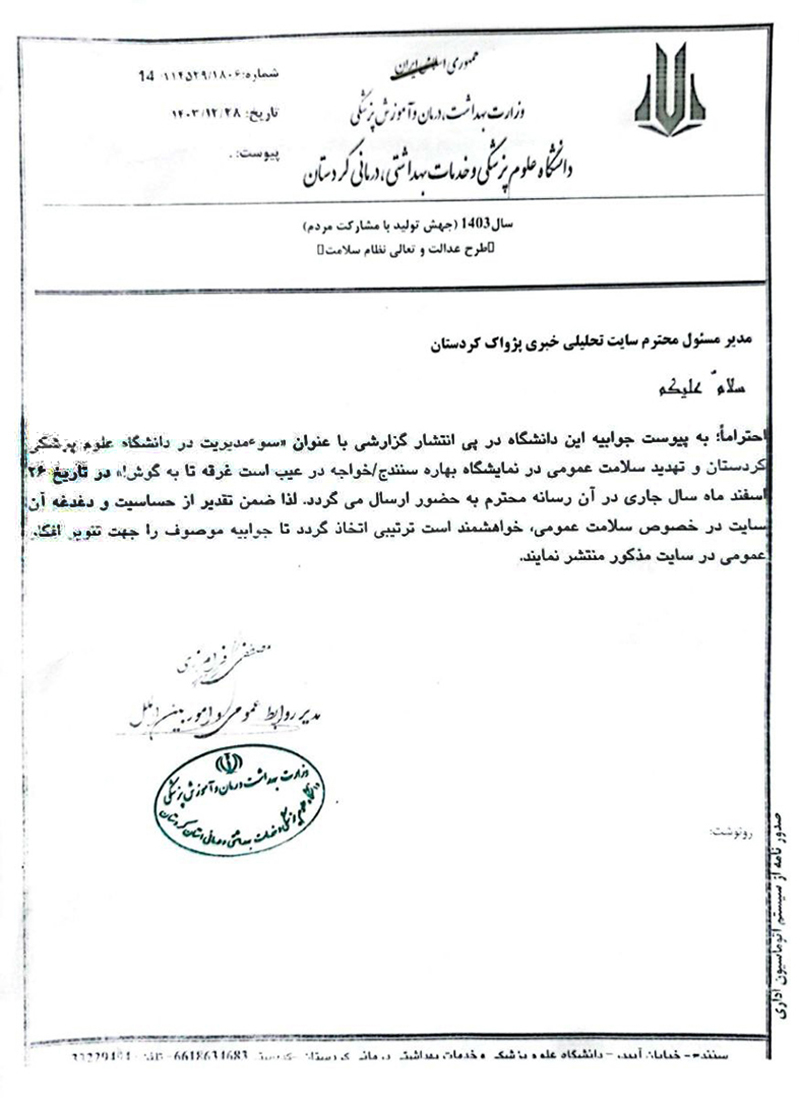 جمهوری اسلامی ایران
وزارت بهداشت، درمان و آموزش پزشکی
دانشگاه علوم پزشکی و خدمات بهداشتی، درمانی کردستان
شماره: 14/۱۱۴۵۲۹/۱۸۰۶
تاریخ: ۱۴۰۳/۱۲/۲۸
پیوست: .
سال 1403 (جهش تولید با مشارکت مردم)
طرح عدالت و تعالی نظام سلامت
مدیر مسئول محترم سایت تحلیلی خبری پژواک کردستان
سلامٌ علیکم
احتراماً؛ به پیوست جوابیه این دانشگاه در پی انتشار گزارشی با عنوان «سوءمدیریت در دانشگاه علوم پزشکی
کردستان و تهدید سلامت عمومی در نمایشگاه بهاره سنندج/خواجه در عیب است غرقه تا به گوش!» در تاریخ ۲۶
اسفند ماه سال جاری در آن رسانه محترم به حضور ارسال می گردد. لذا ضمن تقدیر از حساسیت و دغدغه آن
سایت در خصوص سلامت عمومی، خواهشمند است ترتیبی اتخاذ گردد تا جوابیه موصوف را جهت تنویر افکار
عمومی در سایت مذکور منتشر نمایند.
مصطفی
مدیر روابط عمومی و امور بین الملل
وزارت بهداشت درمان و آموزش پزشکی
دانشگاه علوم پزشکی و خدمات بهداشتی درمانی استان کردستان
رونوشت:
صدور نامه از سیستم اتوماسیون اداری
سنندج- خیابان آبیدر- دانشگاه علوم پزشکی و خدمات بهداشتی درمانی کردستان- 6618634683